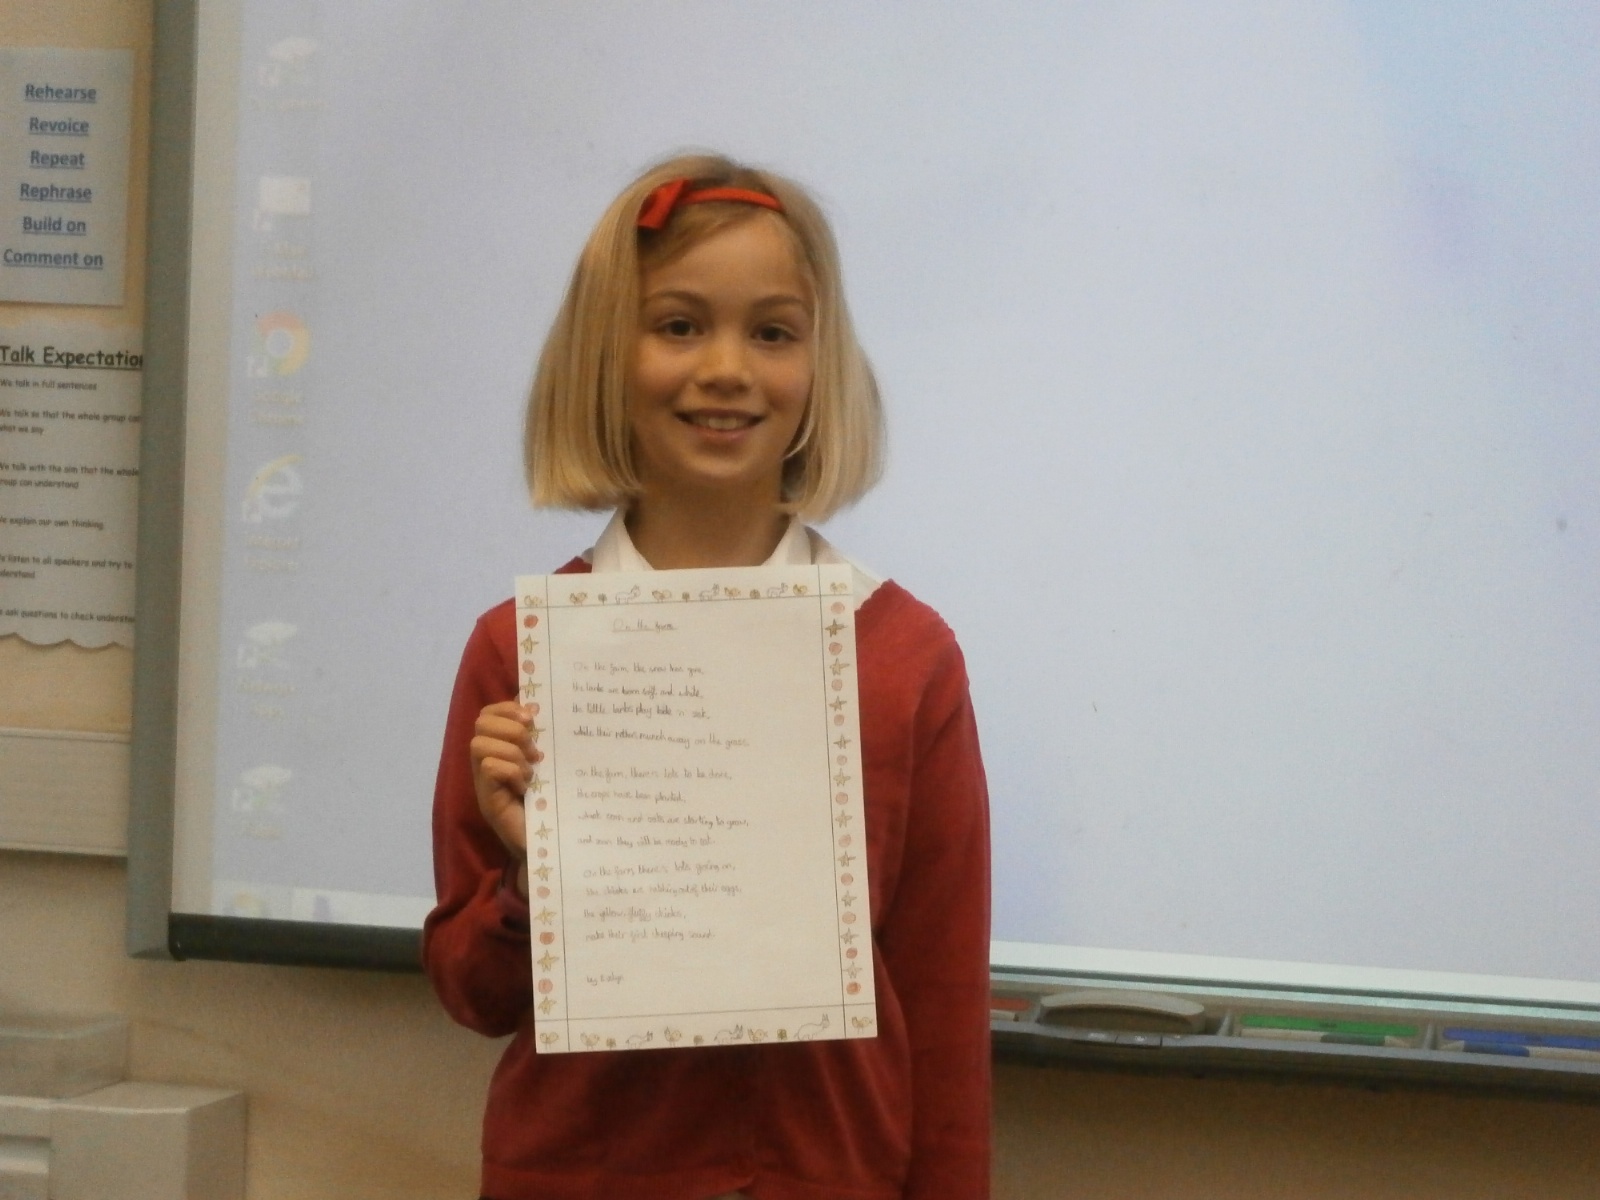 Rehearse
Revoice
Repeat
Rephrase
Build on
Comment on
Talk Expectation
We talk in full sentences
We talk so that the whole group can
what we say
We talk with the aim that the whole
group can understand
We explain our own thinking
listen to all speakers and try to
understand
ask questions to check understan
On the farm
On the farm the snow has gone,
the lambs are born soft and white,
the little lambs play hide n seek,
while their mothers munch away on the grass.
On the farm, there's lots to be done,
the crops have been planted,
wheat corn and oats are starting to grow,
and soon they will be ready to eat.
On the farm there's lots going on,
the chicks are hatching out of their eggs,
the yellow fluffy chicks,
make their first cheeping sound.
by